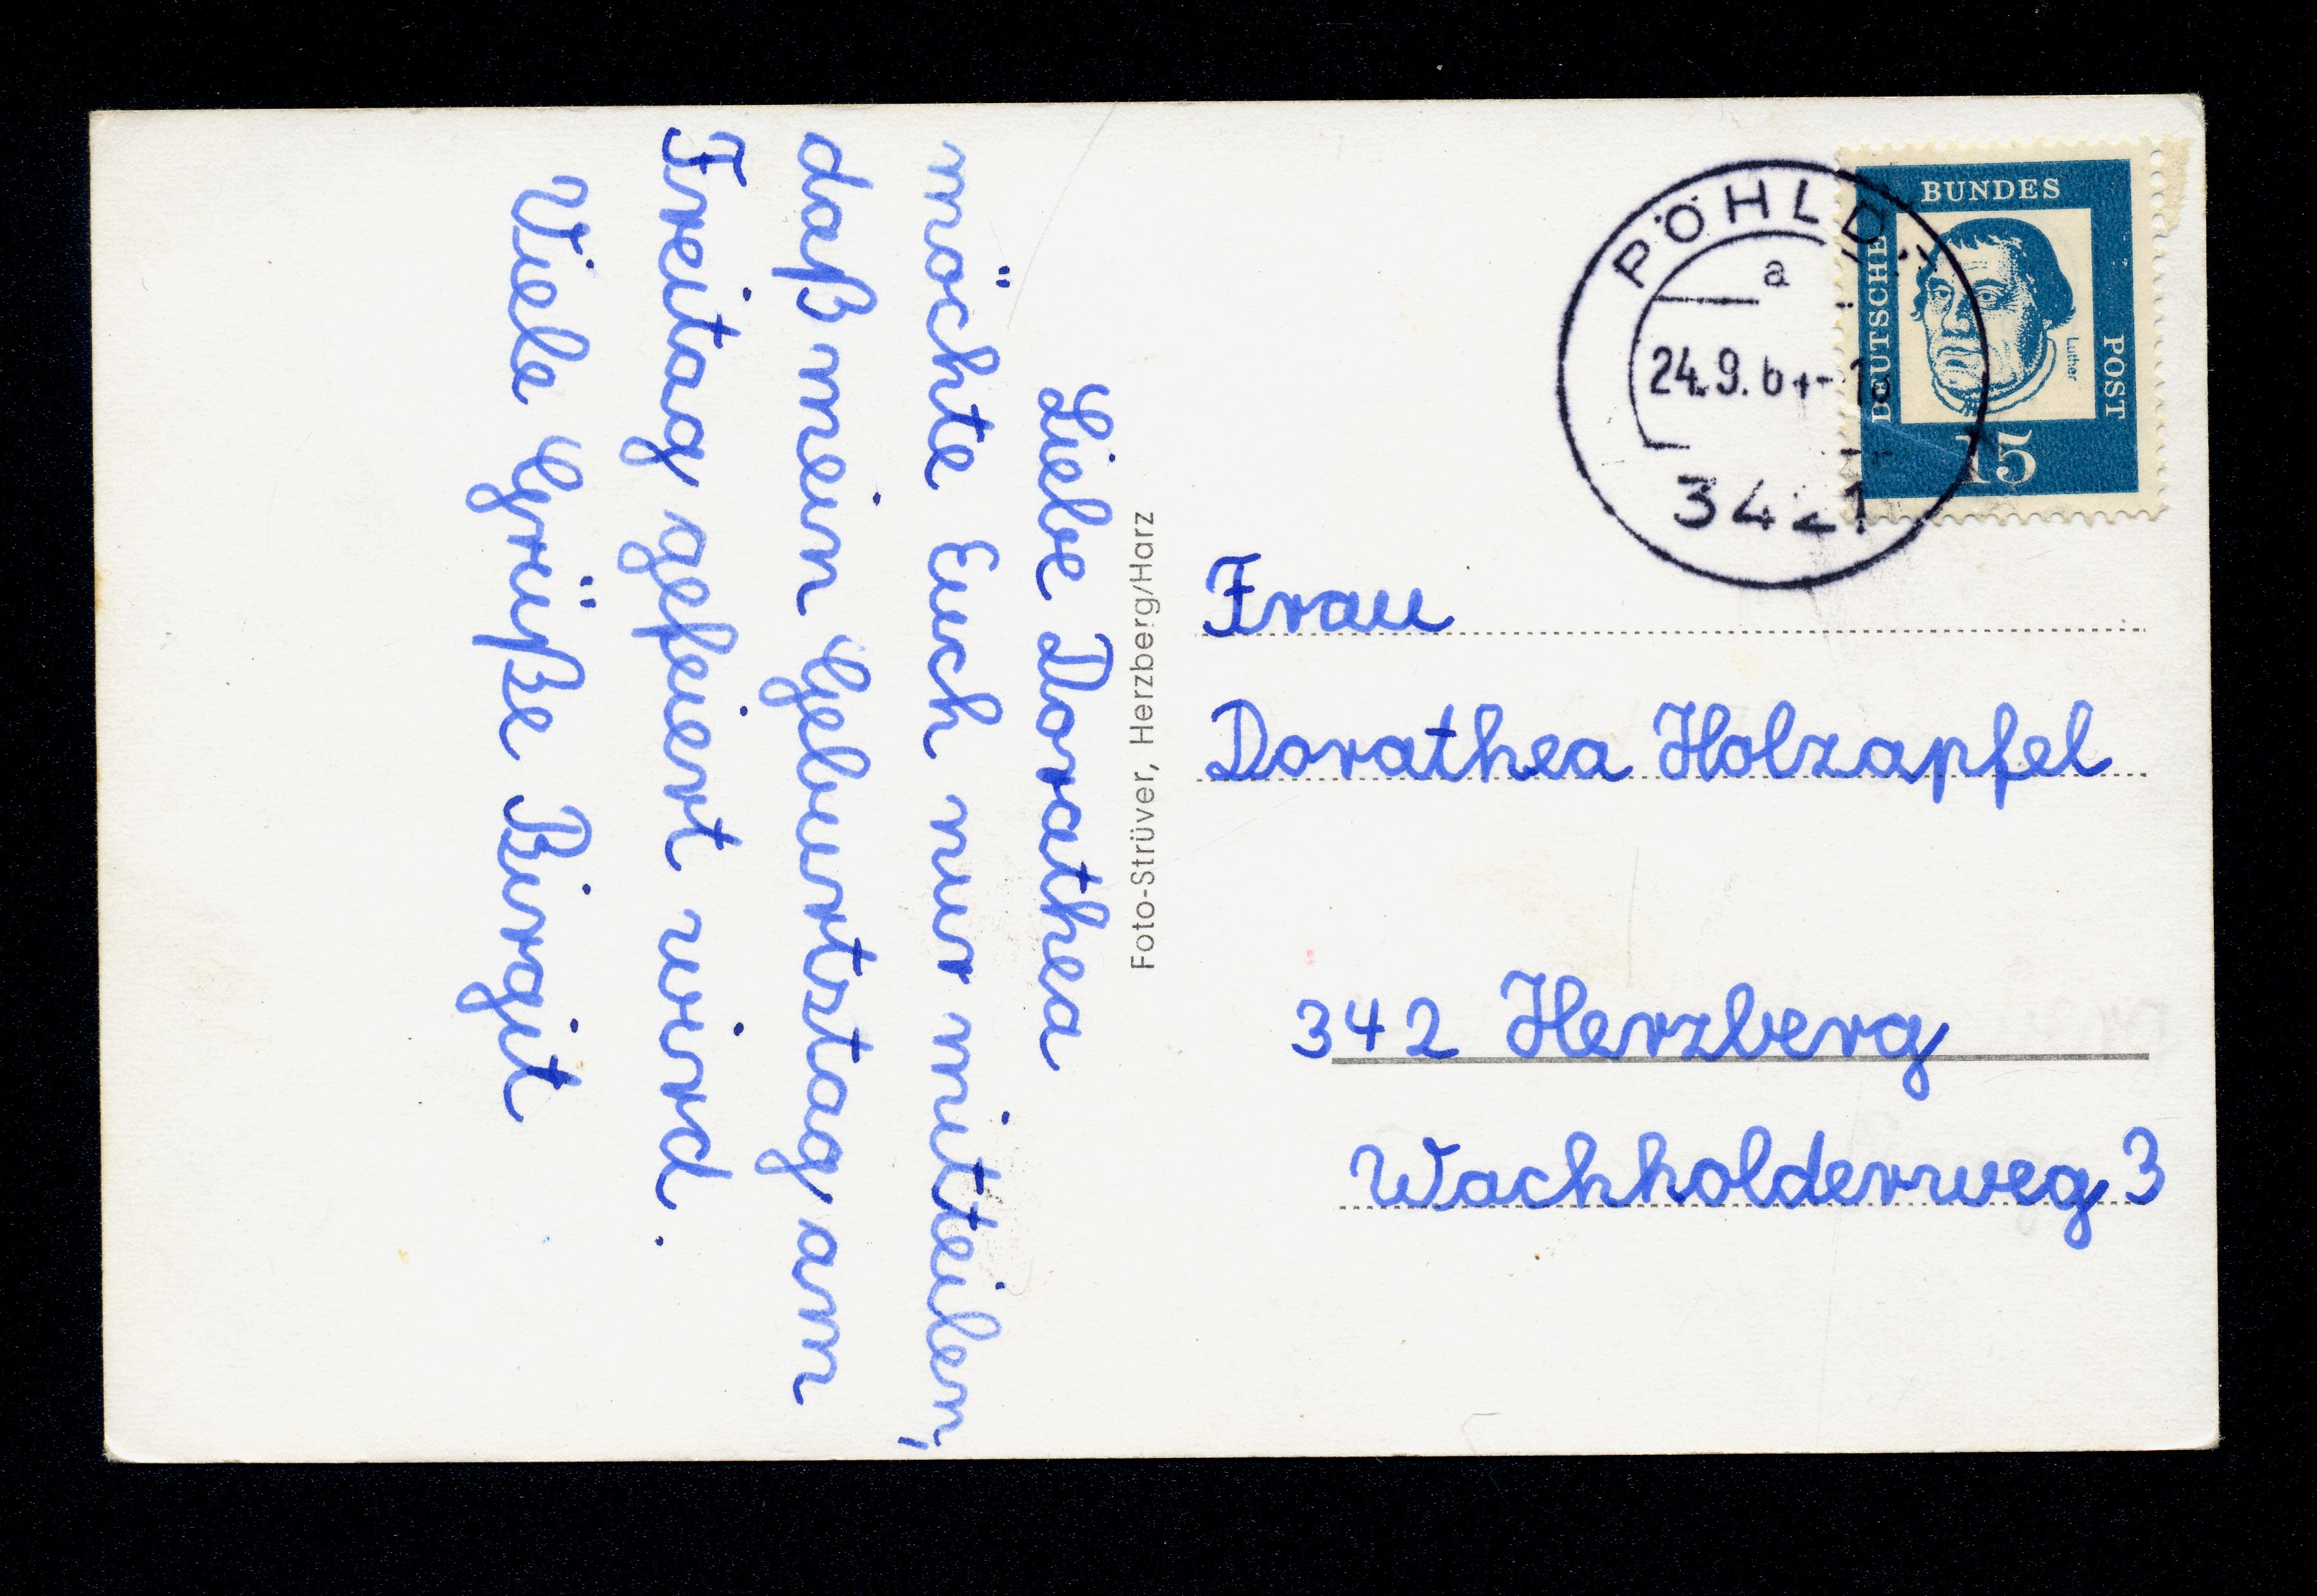 Liebe Dorathea
möchte Euch nur mitteilen,
daß mein Geburtstag am
Freitag gefeiert wird.
Viele Grüße Birgit
Foto-Strüver, Herzberg/Harz
a
24.9.
3421
DEUTSCHE
BUNDES
POST
Luther
15
Frau
Dorathea Holzapfel
342 Herzberg
Wachholderweg 3